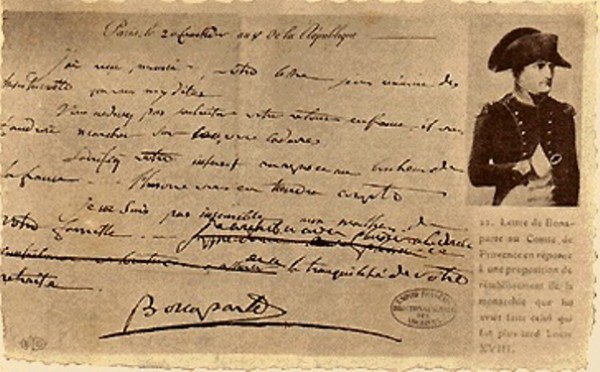 Paris, le 20 fructidor an 8 de la République
J'ai reçu, monsieur, votre lettre je vous remercie des
que vous m'y dites
Vous ne devez pas souhaiter votre retour en france, il vous
faudroit marcher sur 100,000 cadavres
Sacrifiez votre interest au repos et au bonheur de
la france — l'histoire vous en tiendra compte
Je ne suis pas insensible aux malheurs de
votre famille
la tranquilité de votre
retraite
Bonaparte
22. Lettre de Bona-
parte au Comte de
Provence en réponse
à une proposition de
rétablissement de la
monarchie que lui
avait faite celui qui
fut plus tard Louis
XVIII.